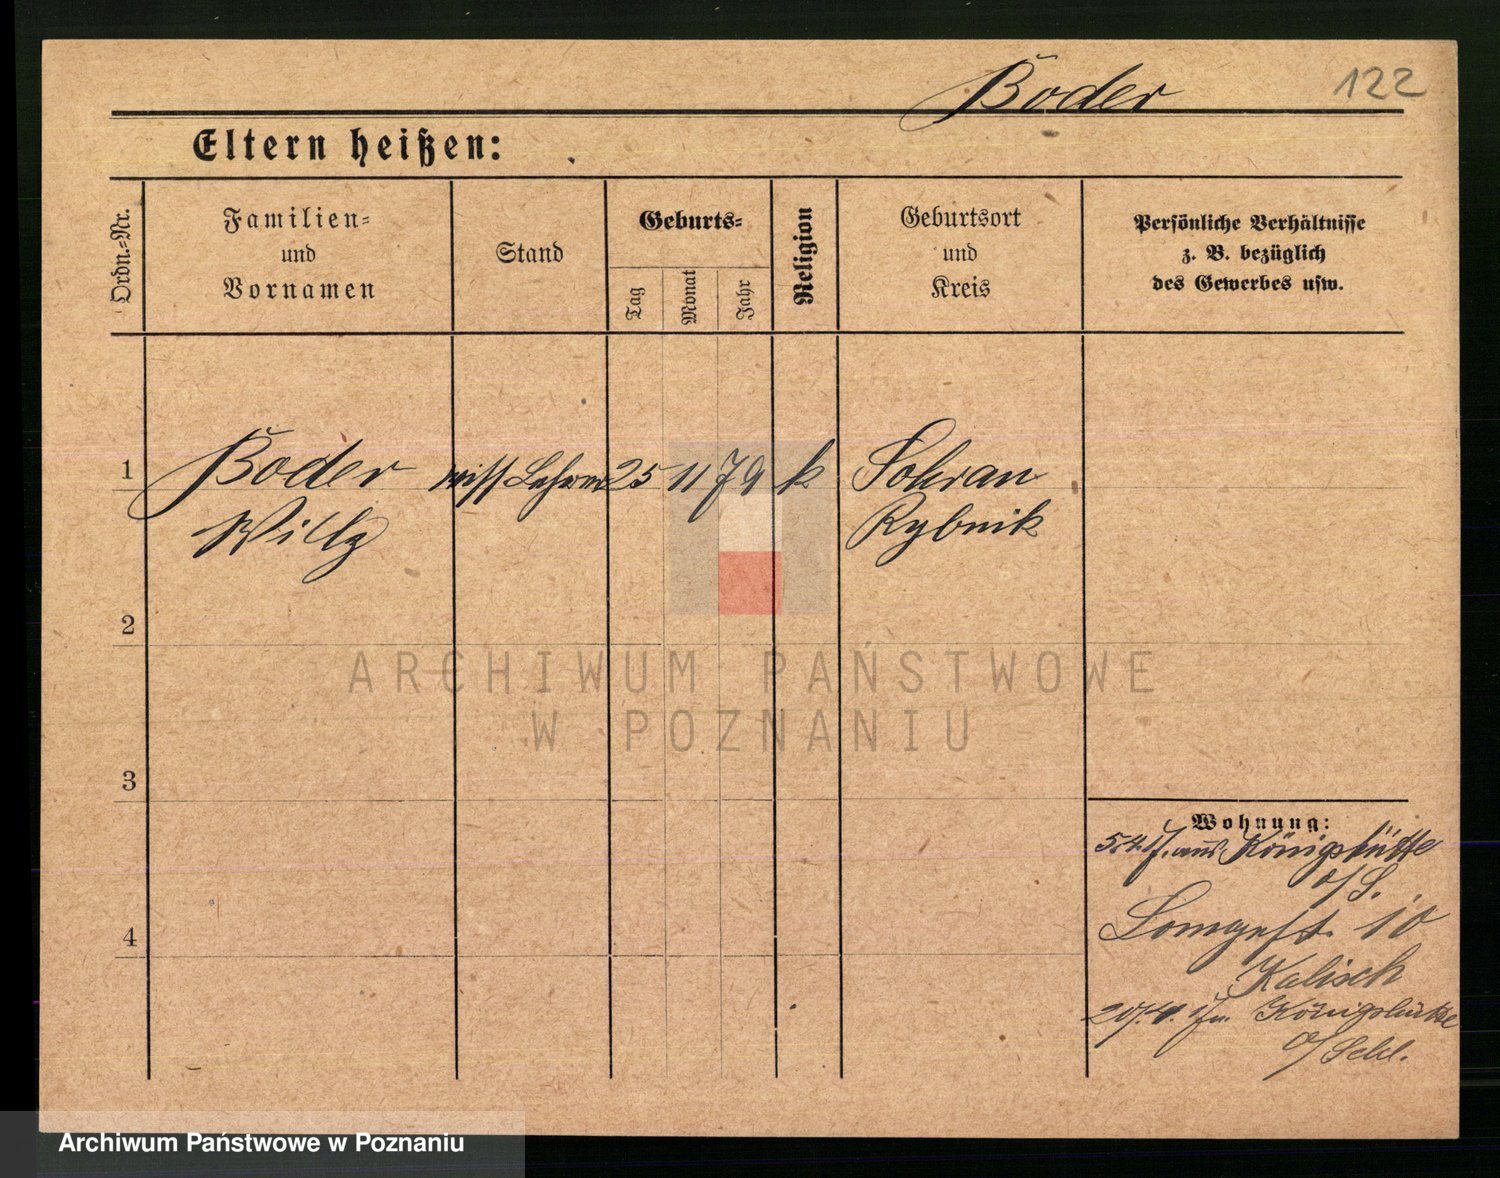 Boder
122
Eltern heißen:
Ordn.=Nr.
Familien=
und
Vornamen
Stand
Geburts=
Tag
Monat
Jahr
Religion
Geburtsort
und
Kreis
Persönliche Verhältnisse
z. B. bezüglich
des Gewerbes usw.
1
Boder
Willy
wiss Lehrer
25
11
79
k
Sohran
Rybnik
2
3
4
Wohnung:
5.4.17. aus Königshütte
o/S.
10
Kalisch
20/4. 17 n. Königshütte
O/Schl.
ARCHIWUM PAŃSTWOWE
W POZNANIU
Archiwum Państwowe w Poznaniu